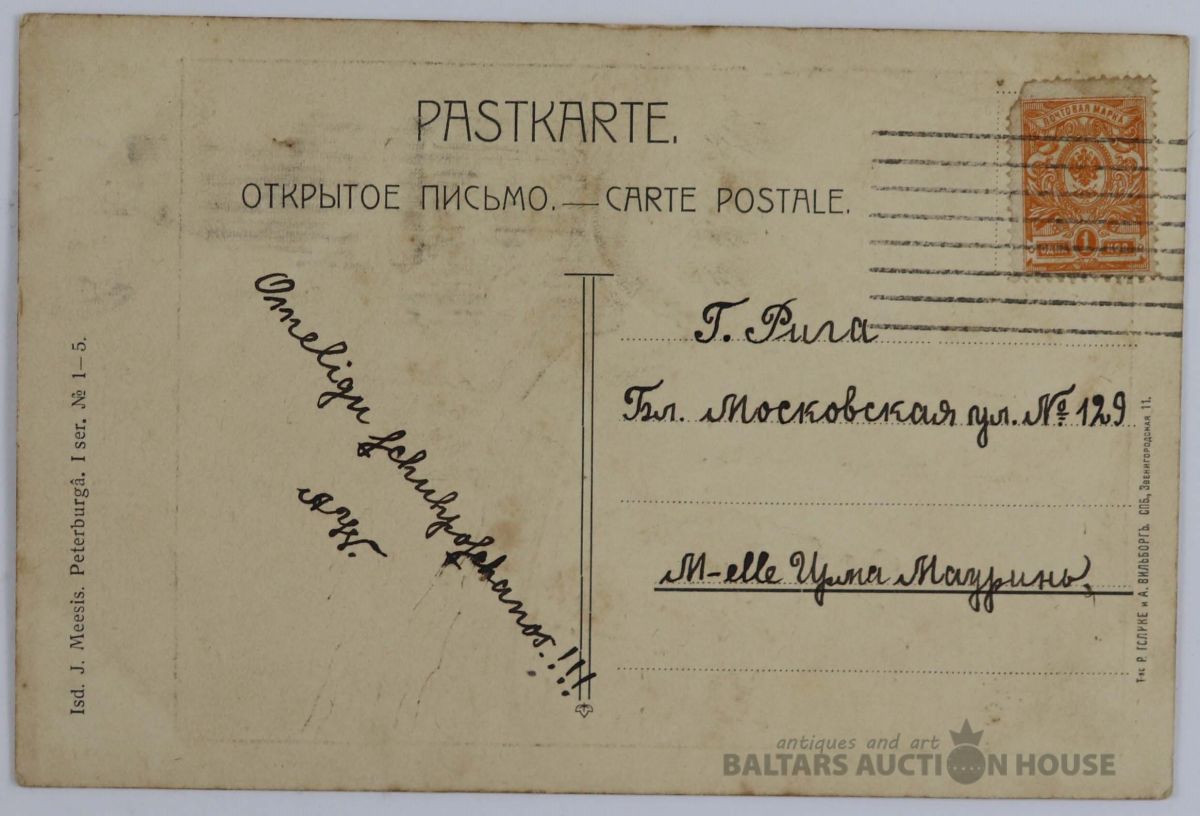 PASTKARTE.
ОТКРЫТОЕ ПИСЬМО. — CARTE POSTALE.
ПОЧТОВАЯ МАРКА
1
ОДНА КОП.
Omeligu schuhposchanos.!!!
Г. Рига
Бл. Московская ул. № 129
M-elle Ирма Мауринь.
Isd. J. Meesis. Peterburgâ. I ser. № 1–5.
Т-во Р. ГОЛИКЕ и А. ВИЛЬБОРГЪ. СПБ., Звенигородская 11.
antiques and art
BALTARS AUCTION HOUSE